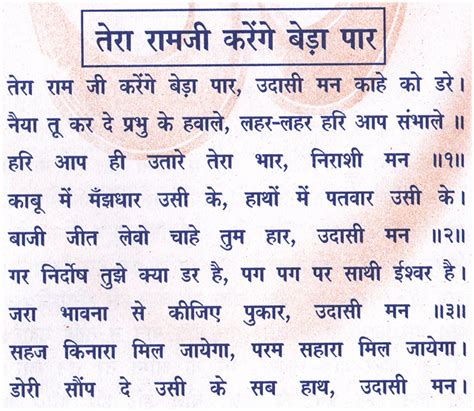 तेरा रामजी करेंगे बेड़ा पार
तेरा राम जी करेंगे बेड़ा पार, उदासी मन काहे को डरे।
नैया तू कर दे प्रभु के हवाले, लहर-लहर हरि आप संभाले ॥
हरि आप ही उतारे तेरा भार, निराशी मन ॥१॥
काबू में मँझधार उसी के, हाथों में पतवार उसी के।
बाजी जीत लेवो चाहे तुम हार, उदासी मन ॥२॥
गर निर्दोष तुझे क्या डर है, पग पग पर साथी ईश्वर है।
जरा भावना से कीजिए पुकार, उदासी मन ॥३॥
सहज किनारा मिल जायेगा, परम सहारा मिल जायेगा।
डोरी सौंप दे उसी के सब हाथ, उदासी मन।